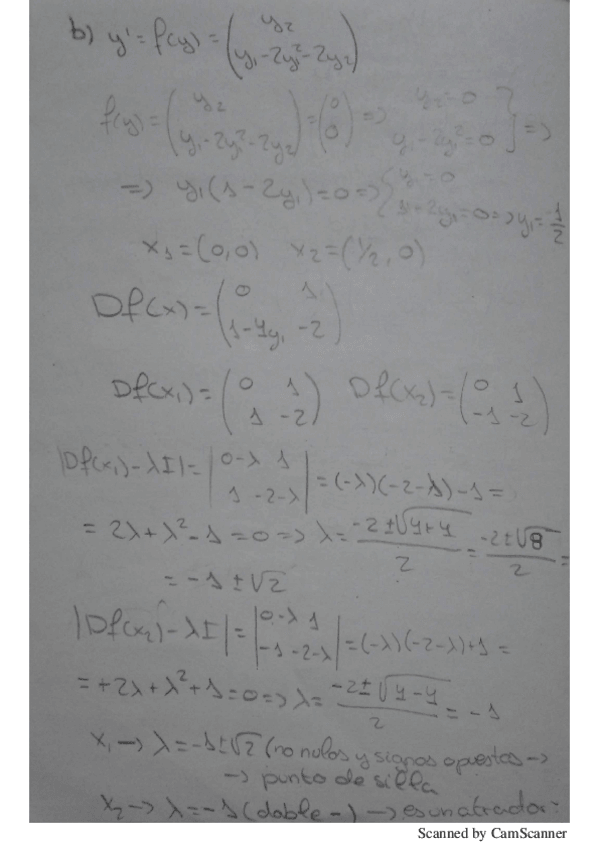 b) y' = f(y) = ( y₂ ; y₁ - 2y₁² - 2y₂ )
f(y) = ( y₂ ; y₁ - 2y₁² - 2y₂ ) = ( 0 ; 0 ) => y₂ = 0 ; y₁ - 2y₁² = 0 } =>
=> y₁(1 - 2y₁) = 0 => { y₁ = 0 ; 1 - 2y₁ = 0 => y₁ = -1/2
x₁ = (0,0) x₂ = (1/2, 0)
Df(x) = ( 0 1 ; 1-4y₁ -2 )
Df(x₁) = ( 0 1 ; 1 -2 ) Df(x₂) = ( 0 1 ; -1 -2 )
|Df(x₁) - λI| = | 0-λ 1 ; 1 -2-λ | = (-λ)(-2-λ) - 1 =
= 2λ + λ² - 1 = 0 => λ = (-2 ± √(4+4))/2 = (-2 ± √8)/2 =
= -1 ± √2
|Df(x₂) - λI| = | 0-λ 1 ; -1 -2-λ | = (-λ)(-2-λ) + 1 =
= +2λ + λ² + 1 = 0 => λ = (-2 ± √(4-4))/2 = -1
x₁ → λ = -1 ± √2 (no nulos y signos opuestos →
→ punto de silla
x₂ → λ = -1 (doble -) → es un atractor
Scanned by CamScanner